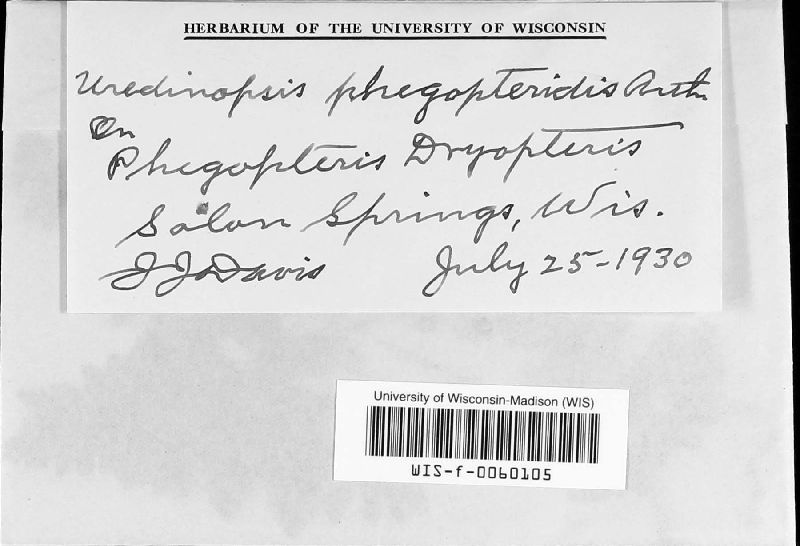 HERBARIUM OF THE UNIVERSITY OF WISCONSIN
Uredinopsis phegopteridis Arth.
On
Phegopteris Dryopteris
Solon Springs, Wis.
J J Davis July 25-1930
University of Wisconsin-Madison (WIS)
WIS-f-0060105